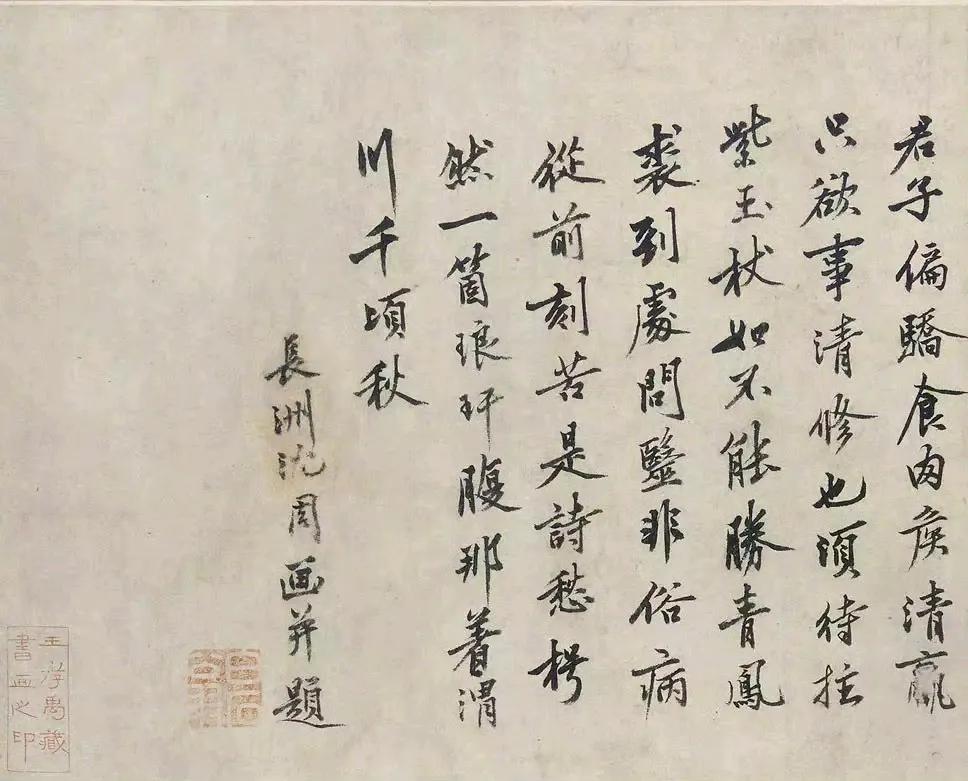 君子偏驕食肉侯清羸
只欲事清修也須待拄
紫玉杖如不能勝青鳳
裘到處問毉非俗病
從前刻苦是詩愁枵
然一箇琅玕腹那着渭
川千頃秋
長洲沈周画并題
王孝禹藏
書画之印